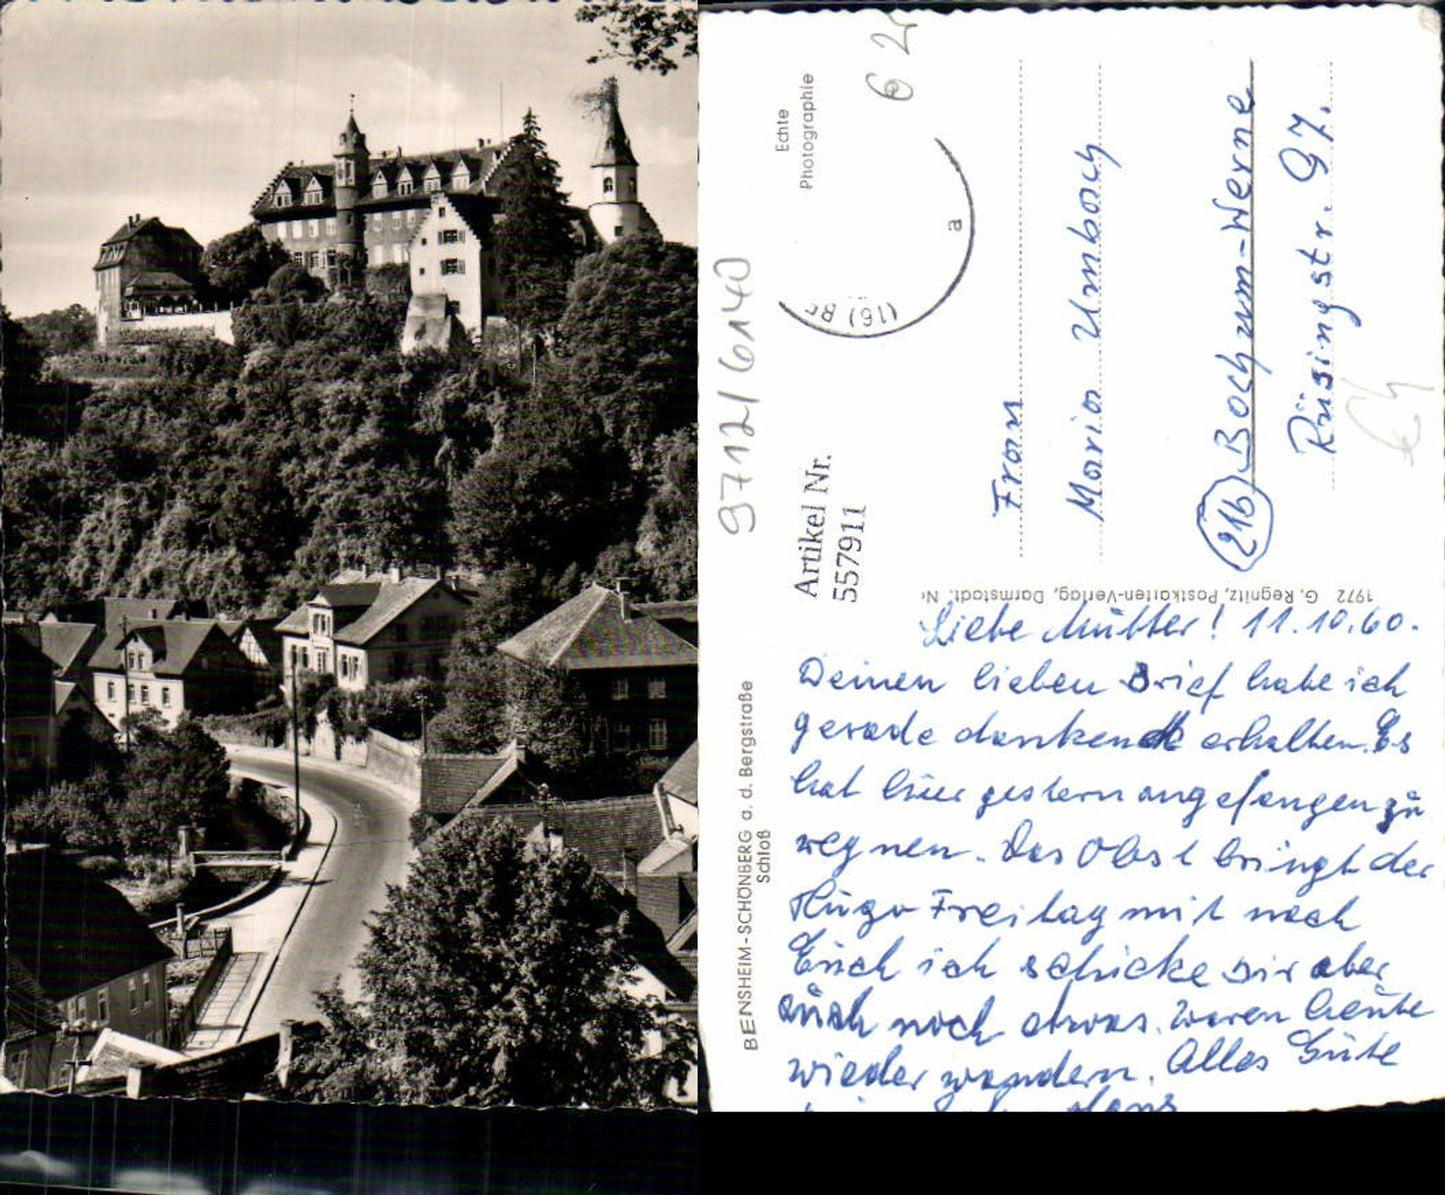 Echte
Photographie
62
(16) Be
a
97121 6140
Artikel Nr.
557911
Frau
Maria Umbach
(21b) Bochum-Werne
Rüsingstr. 97.
1972 G. Regnitz, Postkarten-Verlag, Darmstadt. Nr
BENSHEIM-SCHÖNBERG a. d. Bergstraße
Schloß
Liebe Mutter! 11.10.60.
Deinen lieben Brief habe ich
gerade dankend erhalten. Es
hat hier gestern angefangen zu
regnen. Das Obst bringt der
Hugo Freitag mit nach
Euch ich schicke Dir aber
auch noch etwas. Waren heute
wieder wandern. Alles Gute
Hans